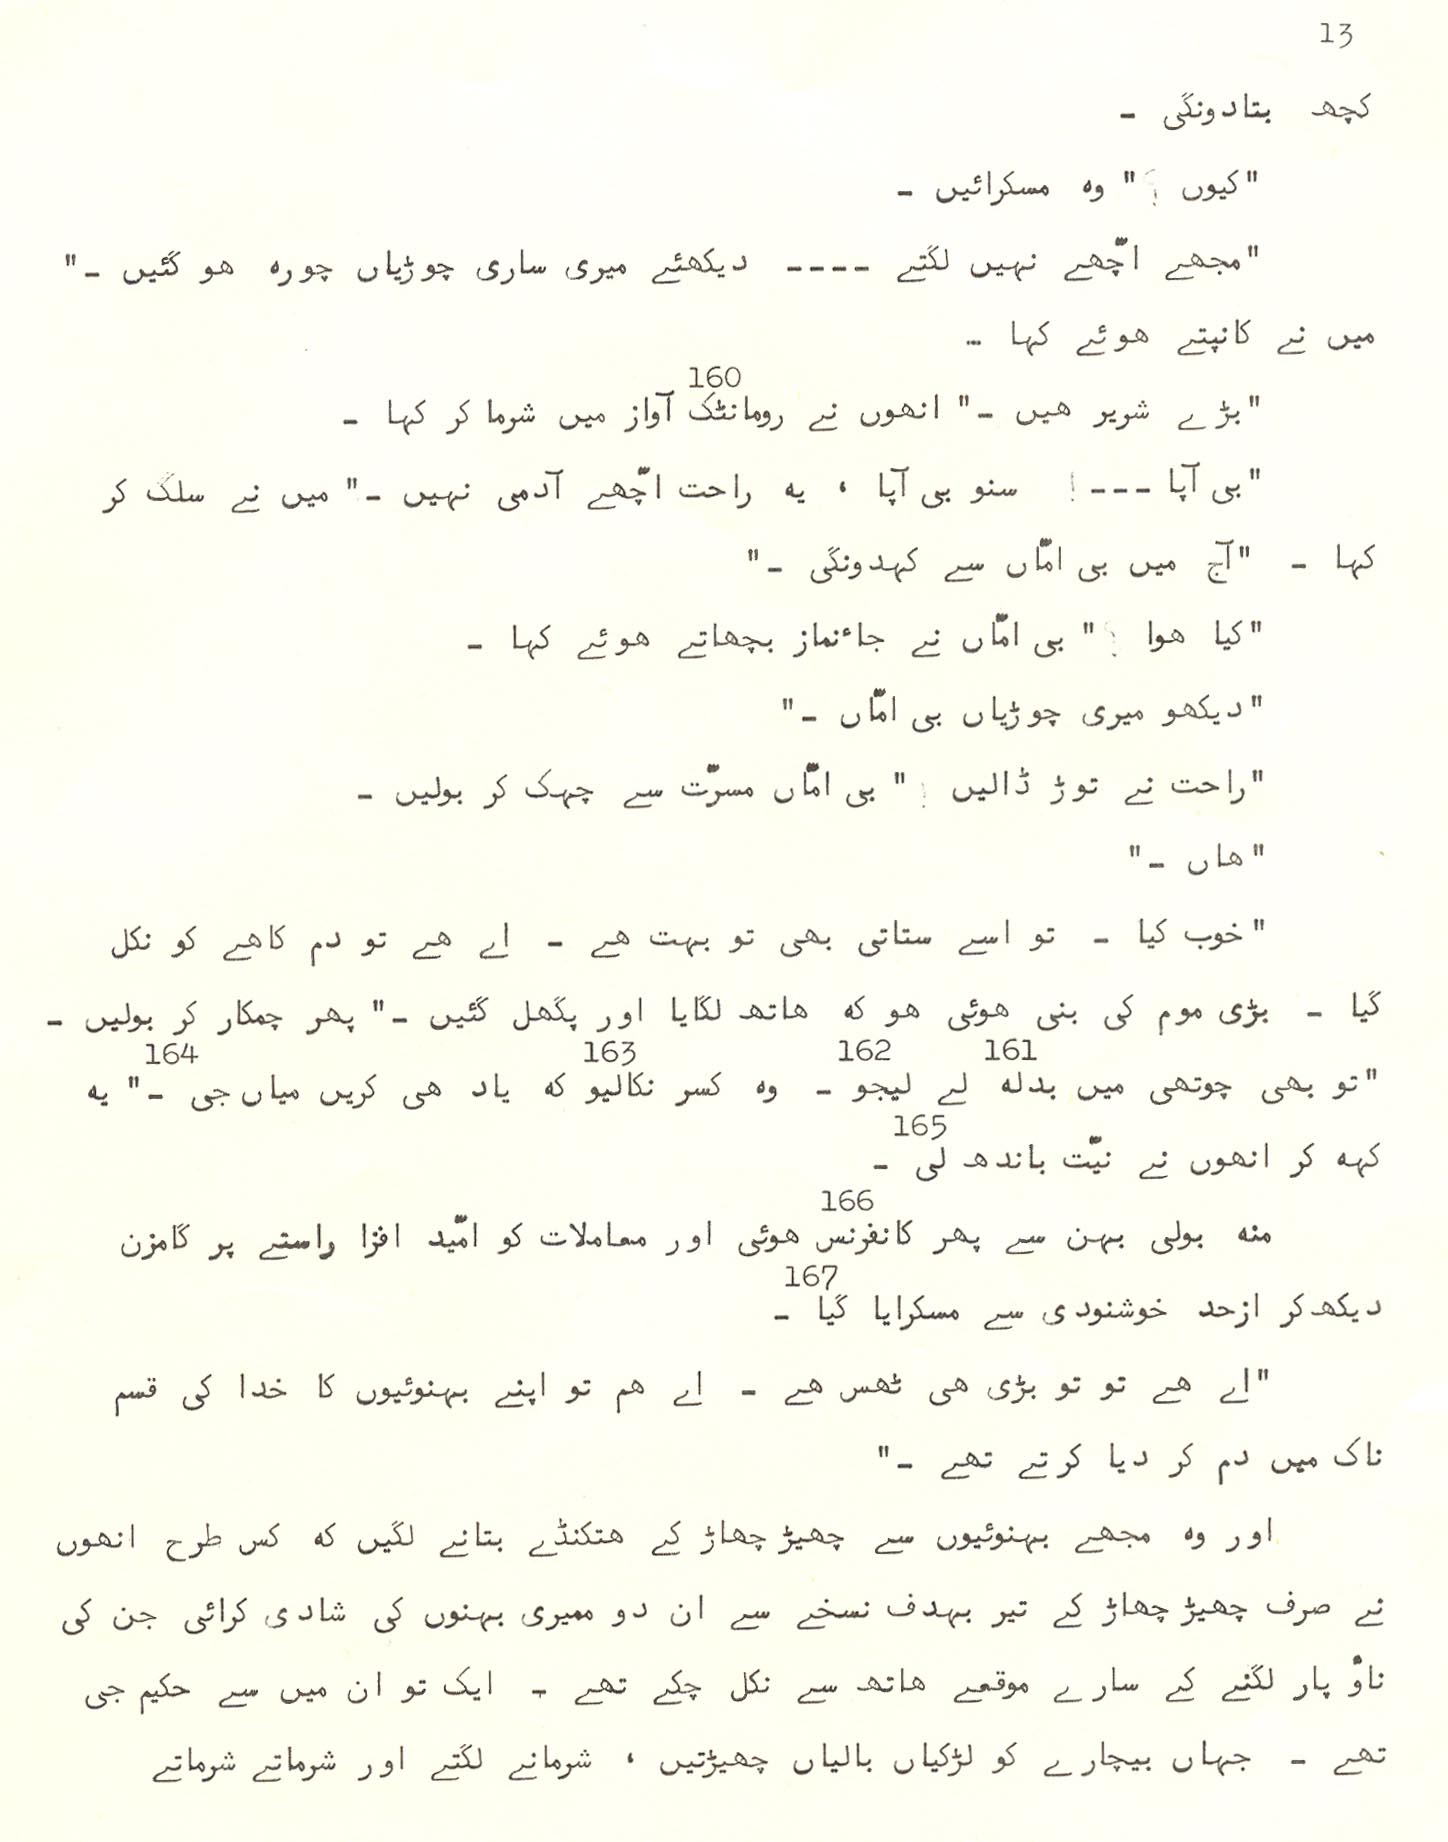 13
کچھ بتادونگی ۔
"کیوں ؟" وہ مسکرائیں ۔
"مجھے اچّھے نہیں لگتے ---- دیکھئے میری ساری چوڑیاں چورہ ھو گئیں ۔"
میں نے کانپتے ھوئے کہا ۔
160
"بڑے شریر ھیں ۔" انھوں نے رومانٹک آواز میں شرما کر کہا ۔
"بی آپا ---! سنو بی آپا ، یہ راحت اچّھے آدمی نہیں ۔" میں نے سلگ کر
کہا ۔ "آج میں بی امّاں سے کہدونگی ۔"
"کیا ھوا ؟" بی امّاں نے جاءنماز بچھاتے ھوئے کہا ۔
"دیکھو میری چوڑیاں بی امّاں ۔"
"راحت نے توڑ ڈالیں !" بی امّاں مسرّت سے چہک کر بولیں ۔
"ھاں ۔"
"خوب کیا ۔ تو اسے ستاتی بھی تو بہت ھے ۔ اے ھے تو دم کاھے کو نکل
گیا ۔ بڑی موم کی بنی ھوئی ھو کہ ھاتھ لگایا اور پگھل گئیں ۔" پھر چمکار کر بولیں ۔
161 162 163 164
"تو بھی چوتھی میں بدلہ لے لیجو ۔ وہ کسر نکالیو کہ یاد ھی کریں میاں جی ۔" یہ
165
کہہ کر انھوں نے نیّت باندھ لی ۔
166
منہ بولی بہن سے پھر کانفرنس ھوئی اور معاملات کو امّید افزا راستے پر گامزن
167
دیکھ کر ازحد خوشنودی سے مسکرایا گیا ۔
"اے ھے تو تو بڑی ھی ٹھس ھے ۔ اے ھم تو اپنے بہنوئیوں کا خدا کی قسم
ناک میں دم کر دیا کرتے تھے ۔"
اور وہ مجھے بہنوئیوں سے چھیڑ چھاڑ کے ھتکنڈے بتانے لگیں کہ کس طرح انھوں
نے صرف چھیڑ چھاڑ کے تیر بہدف نسخے سے ان دو ممیری بہنوں کی شادی کرائی جن کی
ناؤ پار لگنے کے سارے موقعے ھاتھ سے نکل چکے تھے ۔ ایک تو ان میں سے حکیم جی
تھے ۔ جہاں بیچارے کو لڑکیاں بالیاں چھیڑتیں ، شرمانے لگتے اور شرماتے شرماتے